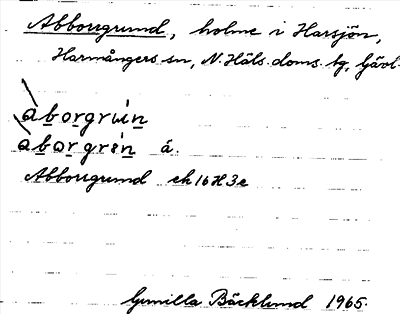 Abborrgrund, holme i Harsjön,
Harmångers sn, N. Häls. doms. tg, Gävl.
àborgrún
àborgrèn á.
Abborrgrund ek 16H3e
Gunilla Bäcklund 1965.